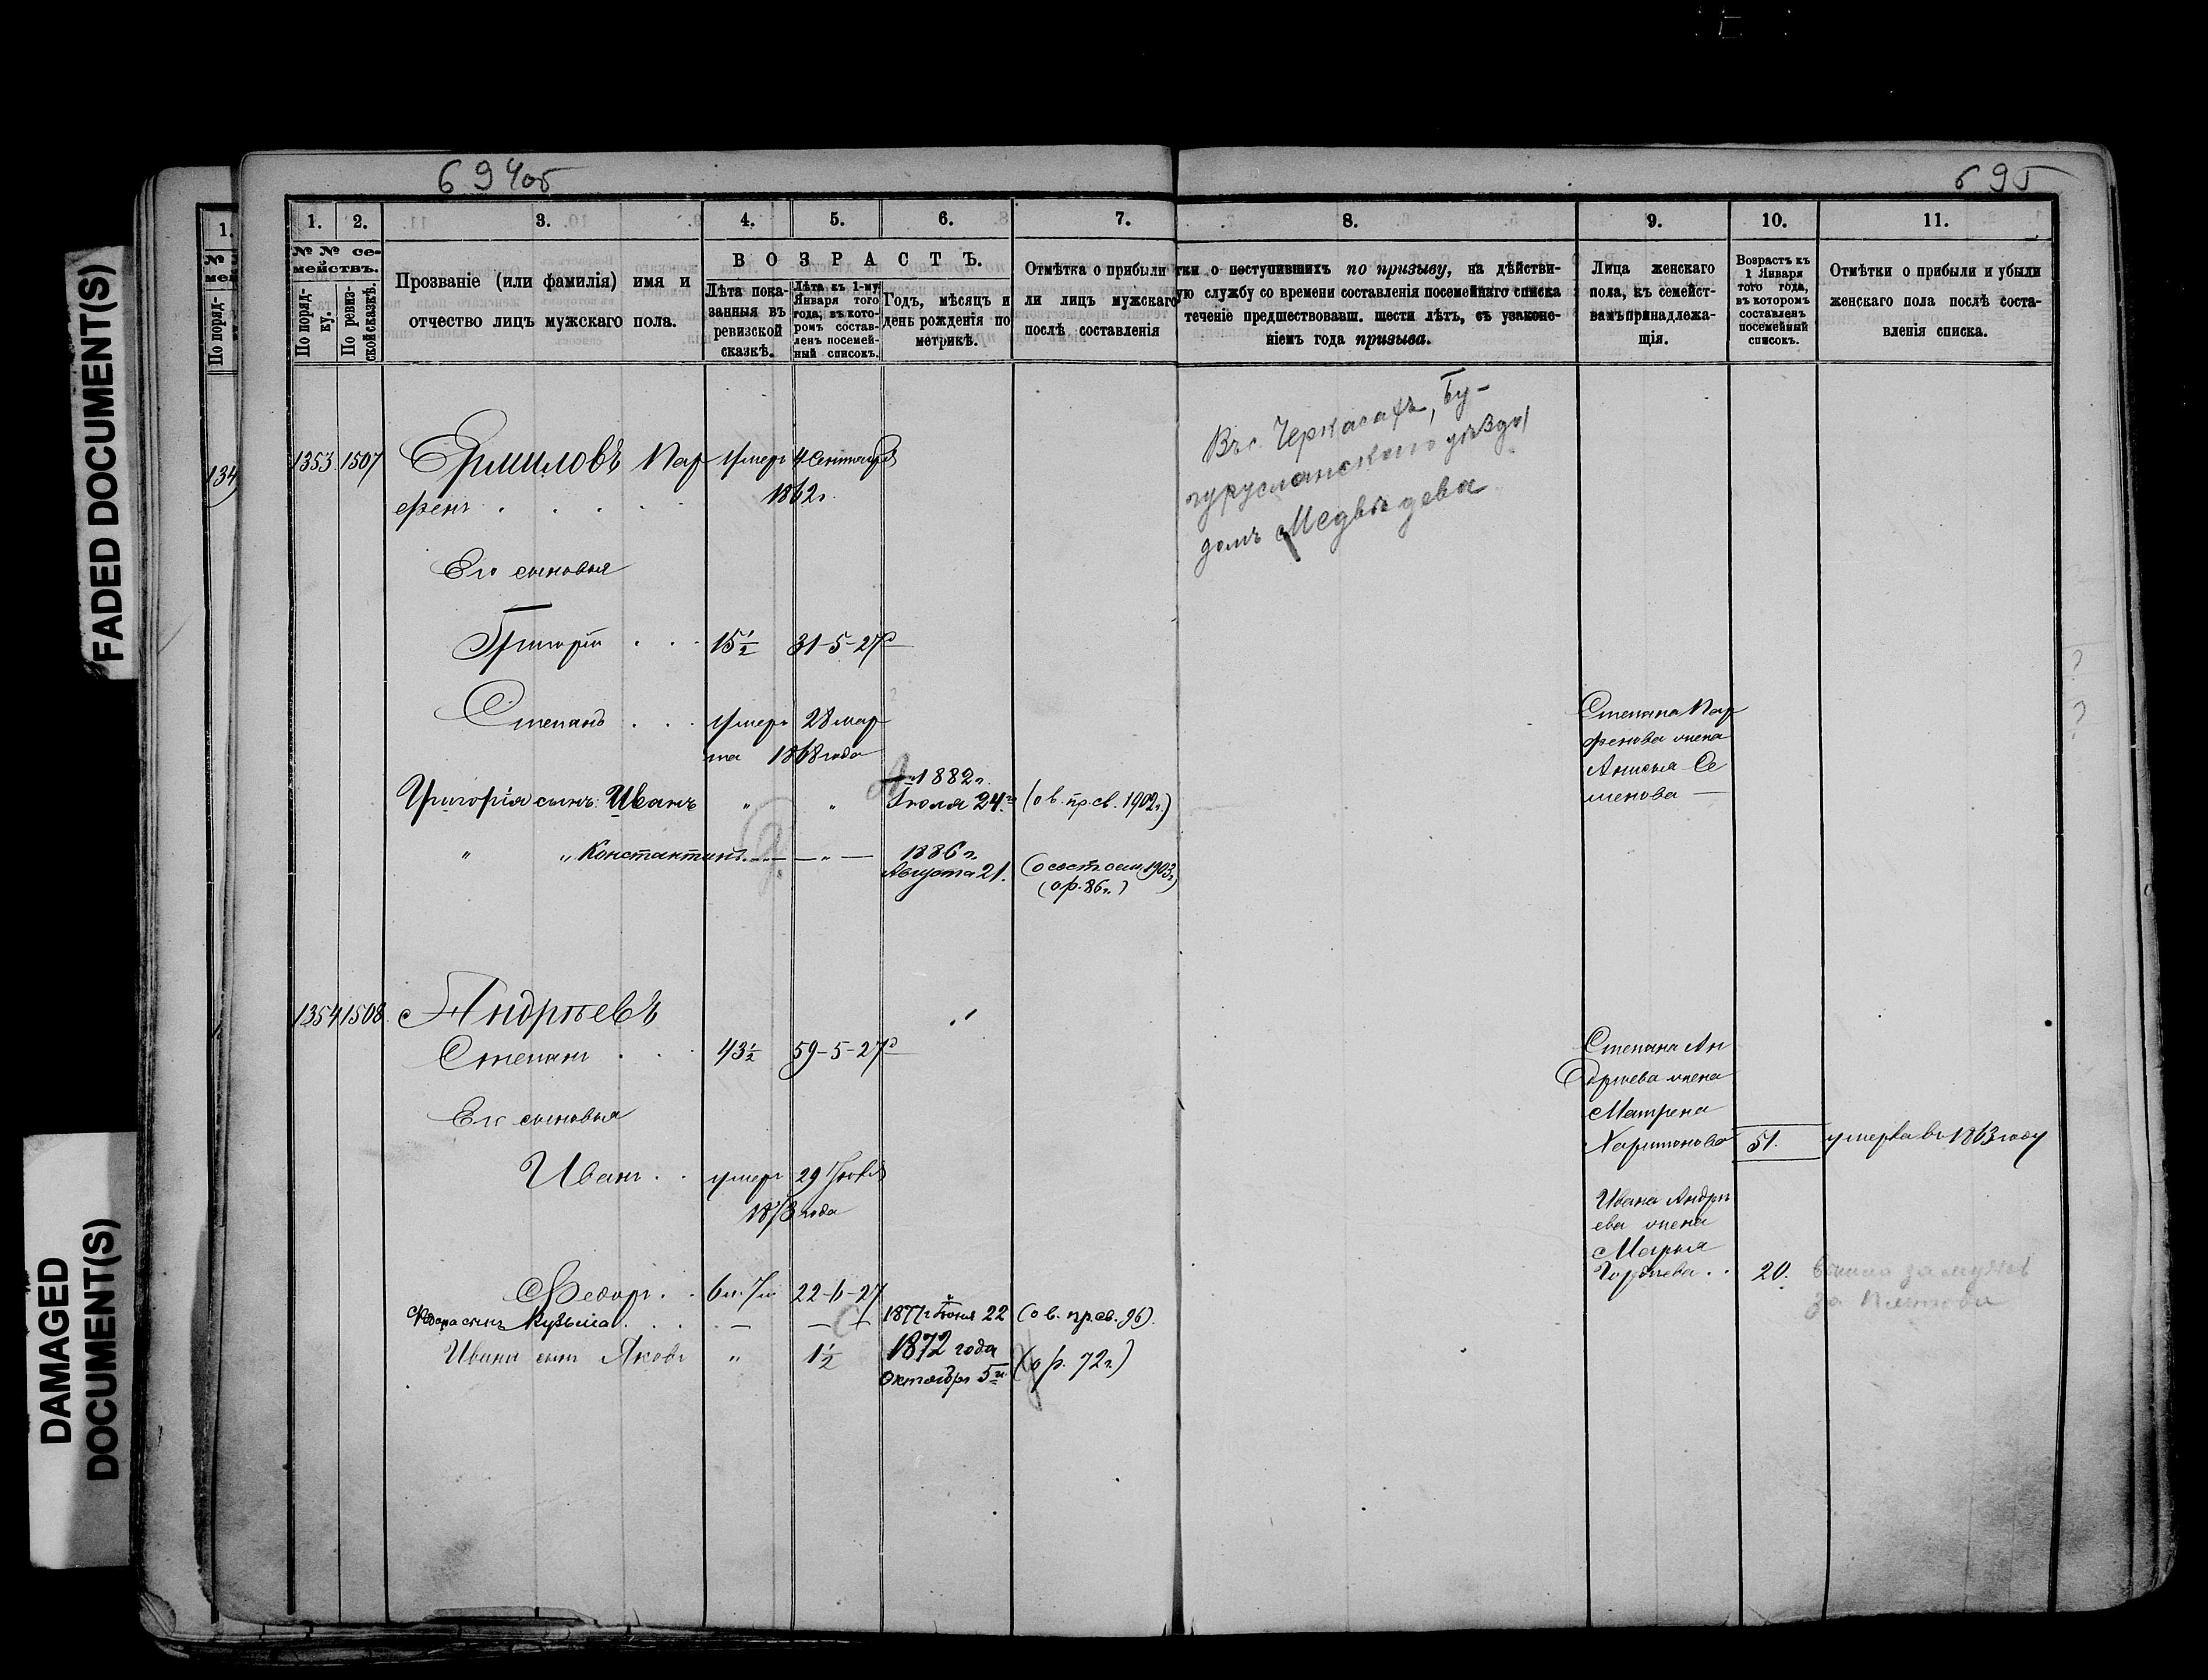 FADED DOCUMENT(S)
DAMAGED
DOCUMENT(S)
694об
695
1. 2. 3. 4. 5. 6. 7. 8. 9. 10. 11.
№ № се-
мействъ.
По поряд-
ку.
По ревиз-
ской сказкѣ.
Прозваніе (или фамилія) имя и
отчество лицъ мужскаго пола.
ВОЗРАСТЪ.
Лѣта пока-
занныя въ
ревизской
сказкѣ.
Лѣта къ 1-му
Января того
года, въ кото-
ромъ состав-
ленъ посемей-
ный списокъ.
Годъ, мѣсяцъ и
день рожденія по
метрикѣ.
Отмѣтка о прибыли
ли лицъ мужскаго
послѣ составленія
тки о поступившихъ по призыву, на дѣйстви-
ую службу со времени составленія посемейнаго списка
теченіе предшествовавш. шести лѣтъ, съ узаконе-
ніемъ года призыва.
Лица женскаго
пола, къ семейст-
вамъ принадлежа-
щія.
Возрастъ къ
1 Января
того года,
въ которомъ
составленъ
посемейный
списокъ.
Отмѣтки о прибыли и убыли
женскаго пола послѣ соста-
вленія списка.
1353 1507 Ермиловъ Пар умеръ 4 Сентября
фенъ 1862г.
Въ с. Черкасахъ, Бу-
гурусланскаго уѣзда
домъ Медвѣдева
Его сыновья
Григорій 15½ 31-5-27
Степанъ умеръ 28 мар
та 1868 года
Степана Пар
фенова жена
Анисья Се
менова
Григорія сынъ: Иванъ " " 1882г.
Іюля 24 (о в. пр. св. 1902г.)
" " Константинъ 1886г.
Августа 21. 1903
(о р. 86г.)
1354 1508 Андрѣевъ
Степанъ 43½ 59-5-27
Степана Ан
дрѣева жена
Матрена
Харитонова 51. умерла въ 1863 году
Его сыновья
Иванъ умеръ 29
года
Ивана Андрѣ
ева жена
Марья
20. вышла замужъ
за
Федоръ 6 22-6-27
Федора сынъ Кузьма 1877г Іюня 22 (о в. пр. св. 96).
Ивана сынъ Яковъ " 1½ 1872 года
Октября 5 (о р. 72г.)